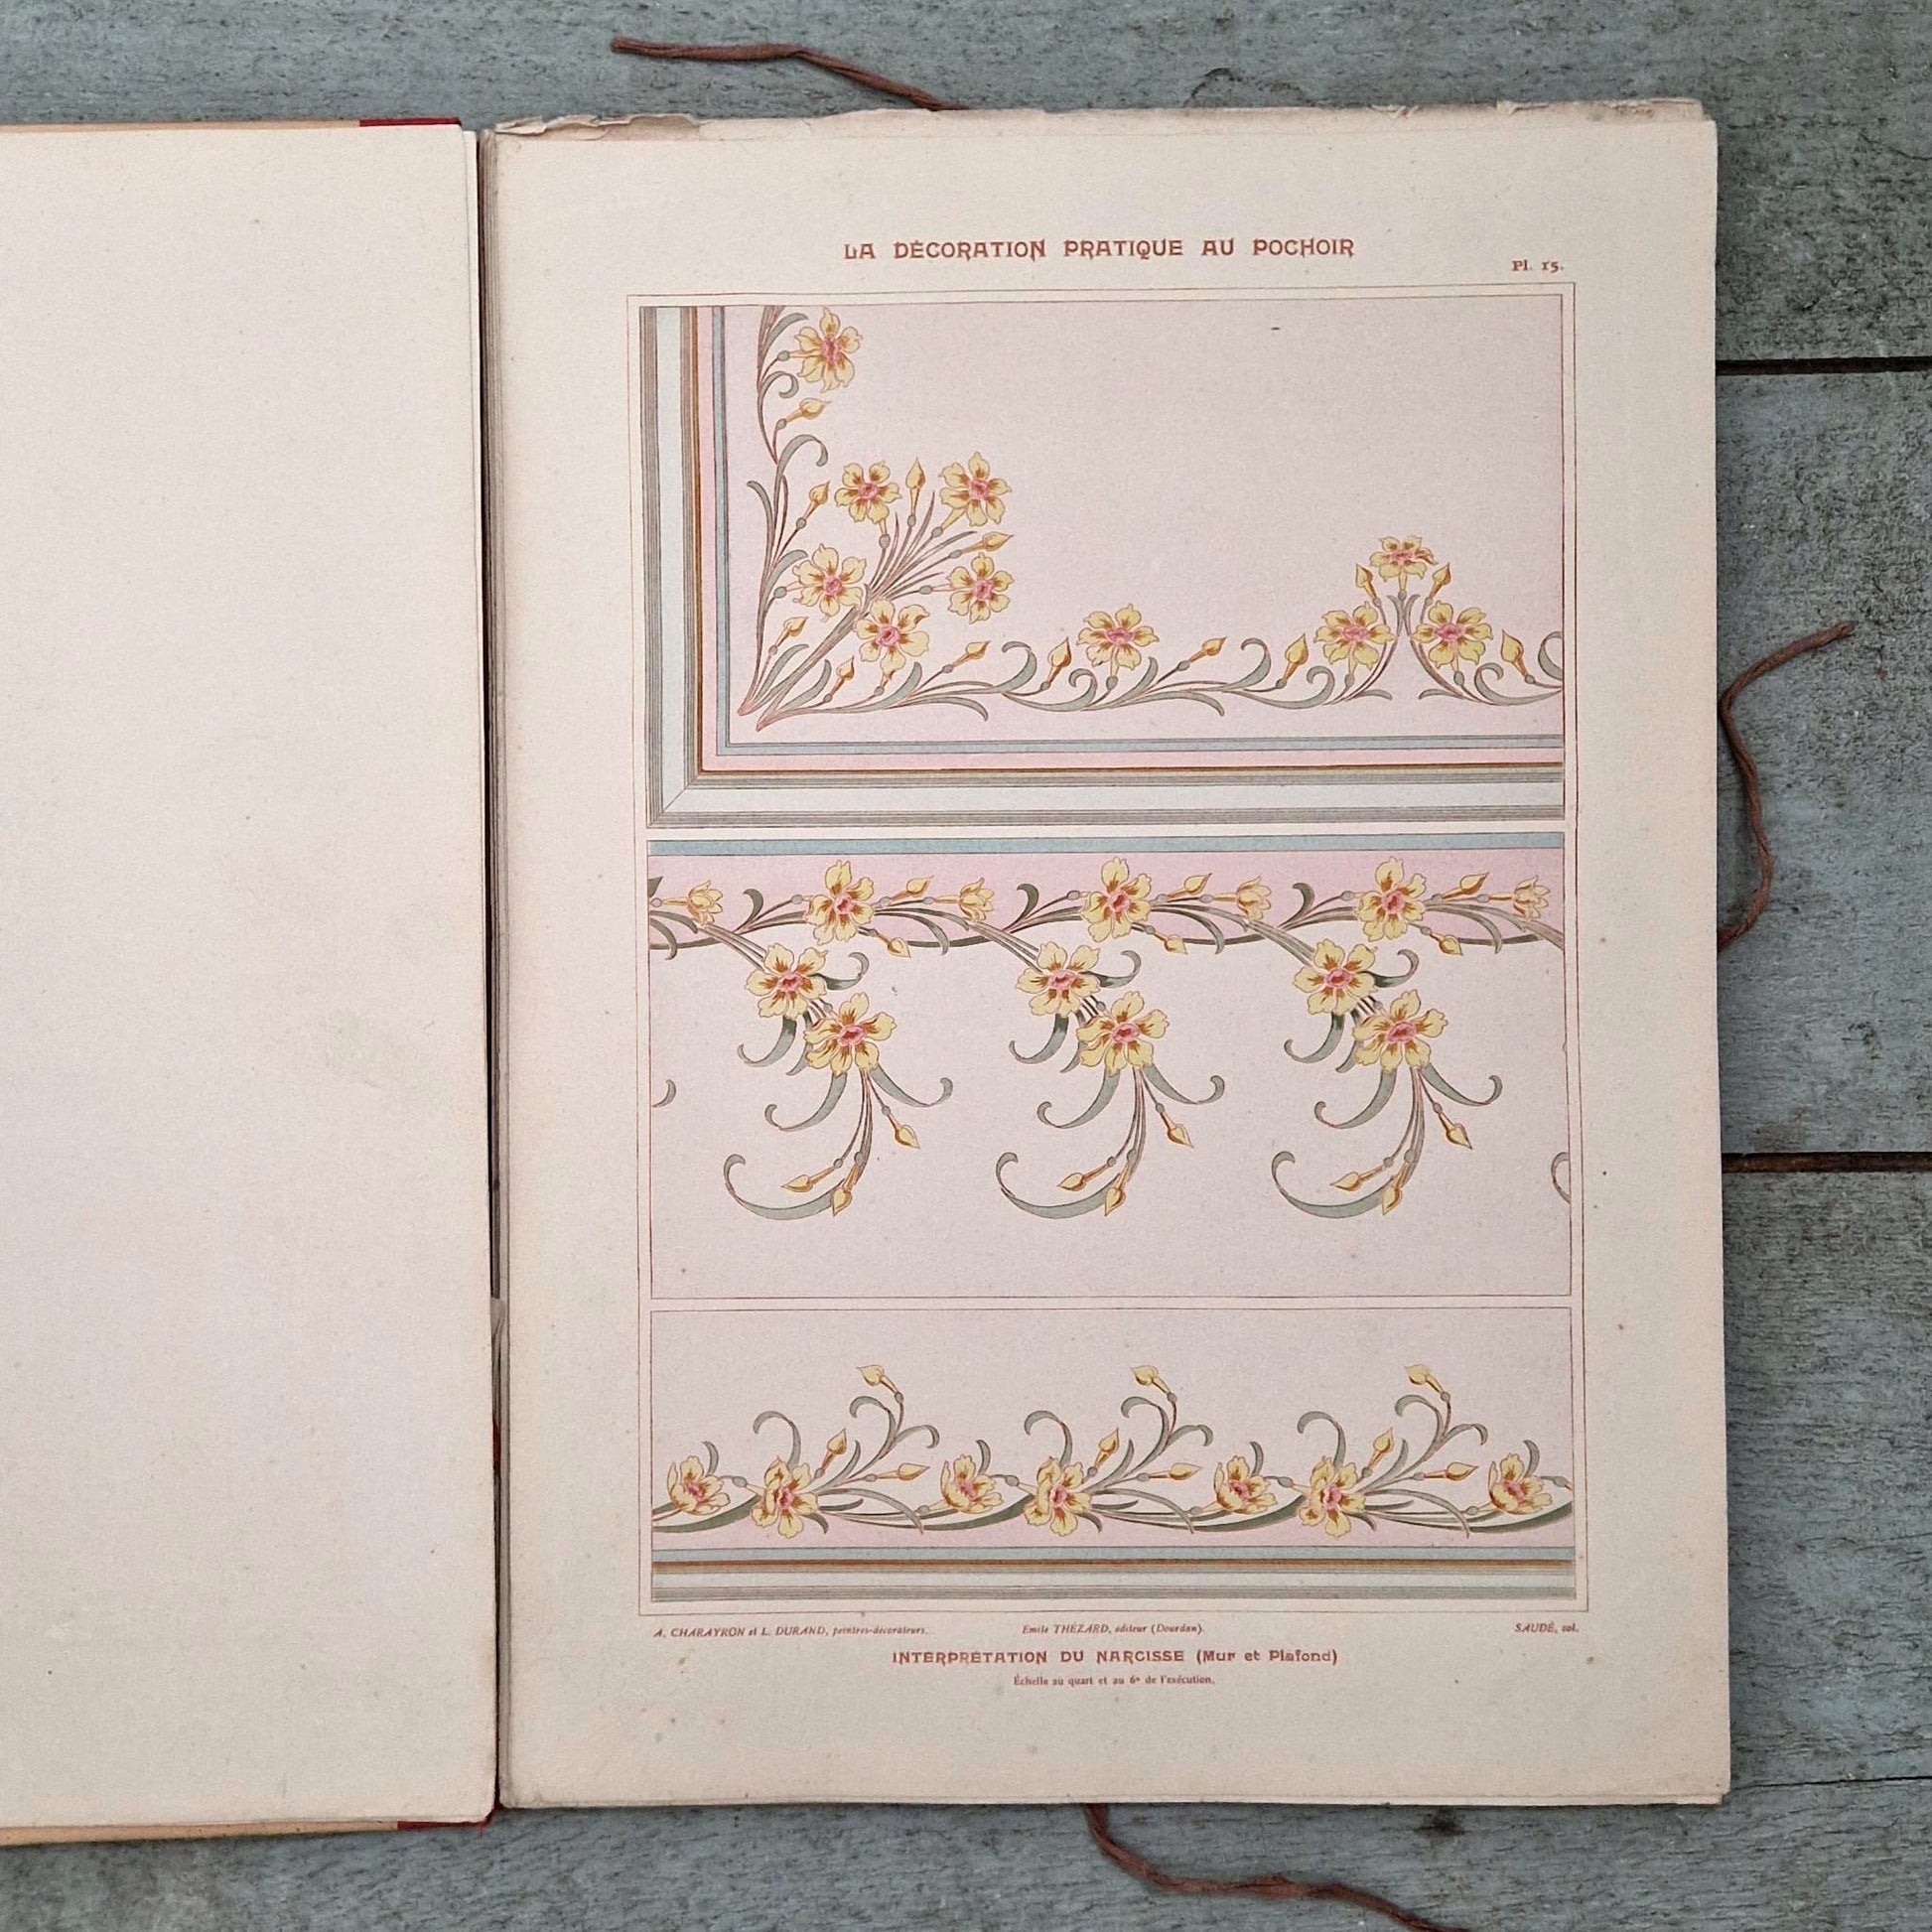 LA DÉCORATION PRATIQUE AU POCHOIR
Pl. 15.
A. CHARAYRON et L. DURAND, peintres-décorateurs.
Emile THÉZARD, éditeur (Dourdan).
SAUDÉ, col.
INTERPRÉTATION DU NARCISSE (Mur et Plafond)
Échelle au quart et au 6e de l'exécution.